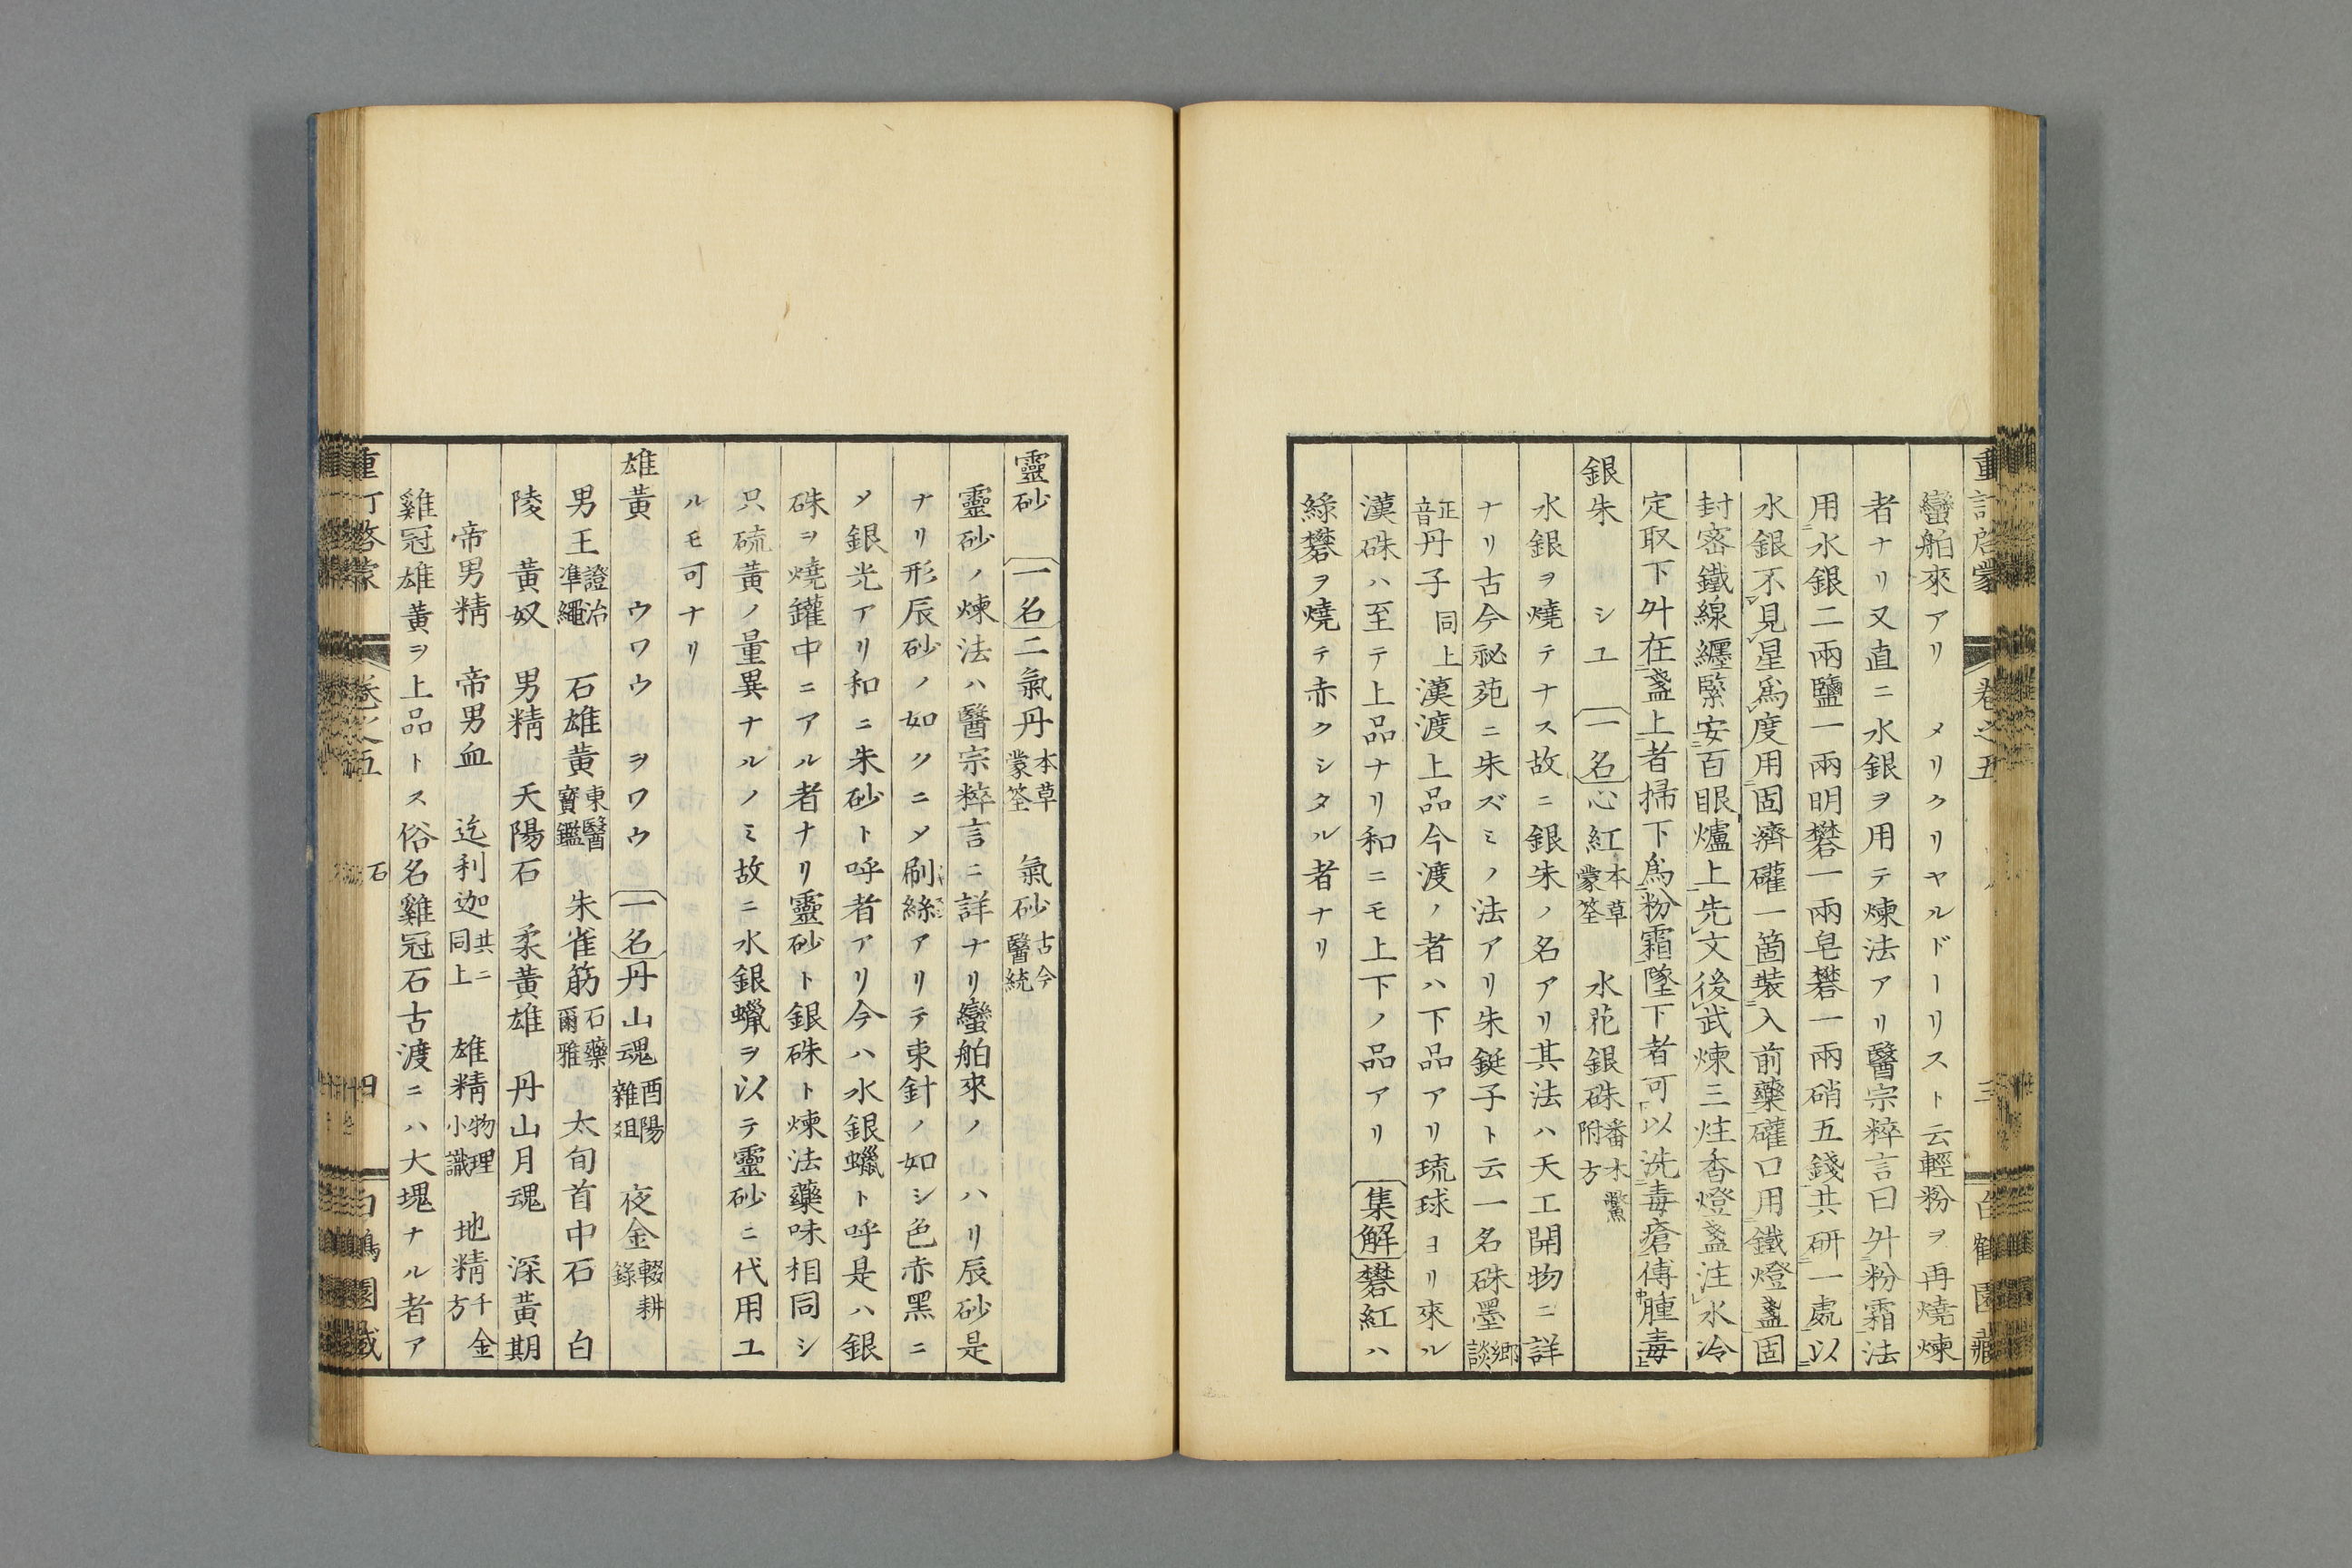 蠻舶來アリ　メリクリヤルドーリスト云輕粉ヲ再燒煉
者ナリ又直ニ水銀ヲ用テ煉法アリ醫宗粹言曰升粉霜法
用水銀二兩鹽一兩明礬一兩皂礬一兩硝五錢共研一處以
水銀不見星爲度用固濟礶一箇裝入前藥礶口用鐵燈盞固
封密鐵線纒緊安百眼爐上先文後武煉三炷香燈盞注水冷
定取下升在盞上者掃下爲粉霜墜下者可以洗毒瘡傅腫毒
銀朱　シユ　一名心紅本草蒙筌　水花銀硃附方
水銀ヲ燒テナス故ニ銀朱ノ名アリ其法ハ天工開物ニ詳
ナリ古今祕苑ニ朱ズミノ法アリ朱鋌子ト云一名硃墨鄉談
正音丹子同上漢渡上品今渡ノ者ハ下品アリ琉球ヨリ來ル
漢硃ハ至テ上品ナリ和ニモ上下ノ品アリ　集解礬紅ハ
綠礬ヲ燒テ赤クシタル者ナリ
靈砂　一名二氣丹本草蒙筌　氣砂古今醫統
靈砂ノ煉法ハ醫宗粹言ニ詳ナリ蠻舶來ノハリ辰砂是
ナリ形辰砂ノ如クニメ刷絲アリテ束針ノ如シ色赤黑ニ
メ銀光アリ和ニ朱砂ト呼者アリ今ハ水銀蠟ト呼是ハ銀
硃ヲ燒罐中ニアル者ナリ靈砂ト銀硃ト煉法藥味相同シ
只硫黃ノ量異ナルノミ故ニ水銀蠟ヲ以テ靈砂ニ代用ユ
ルモ可ナリ
雄黃　ウワウ　ヲワウ　一名丹山魂酉陽雜俎　夜金輟耕錄
男王證治準繩　石雄黃東醫寶鑑　朱雀筋石藥爾雅　太旬首中石　白
陵　黃奴　男精　天陽石　柔黃雄　丹山月魂　深黃期
帝男精　帝男血　迄利迦共ニ同上　雄精物理小識　地精千金方
雞冠雄黃ヲ上品トス俗名雞冠石古渡ニハ大塊ナル者ア